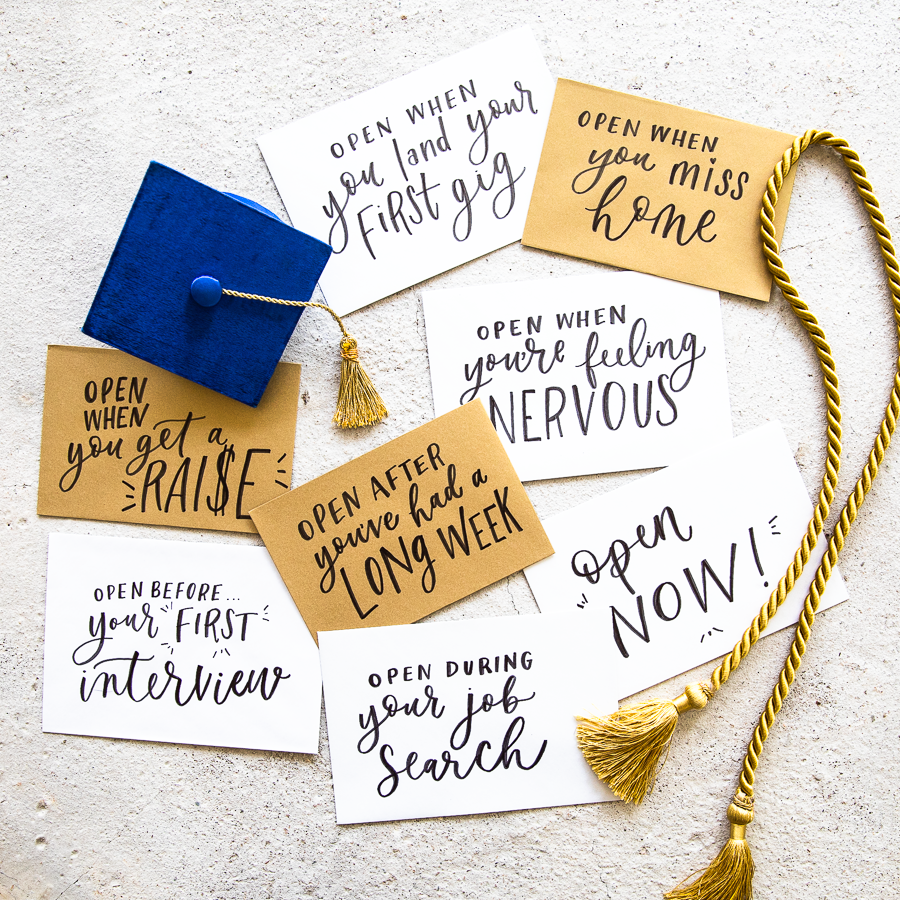 OPEN WHEN
you land your
FIRST gig
OPEN WHEN
you miss
home
OPEN WHEN
you're feeling
NERVOUS
OPEN
WHEN
you get a
RAI$E
OPEN AFTER
you've had a
LONG WEEK
open
NOW!
OPEN BEFORE...
your FIRST
interview
OPEN DURING
your job
search